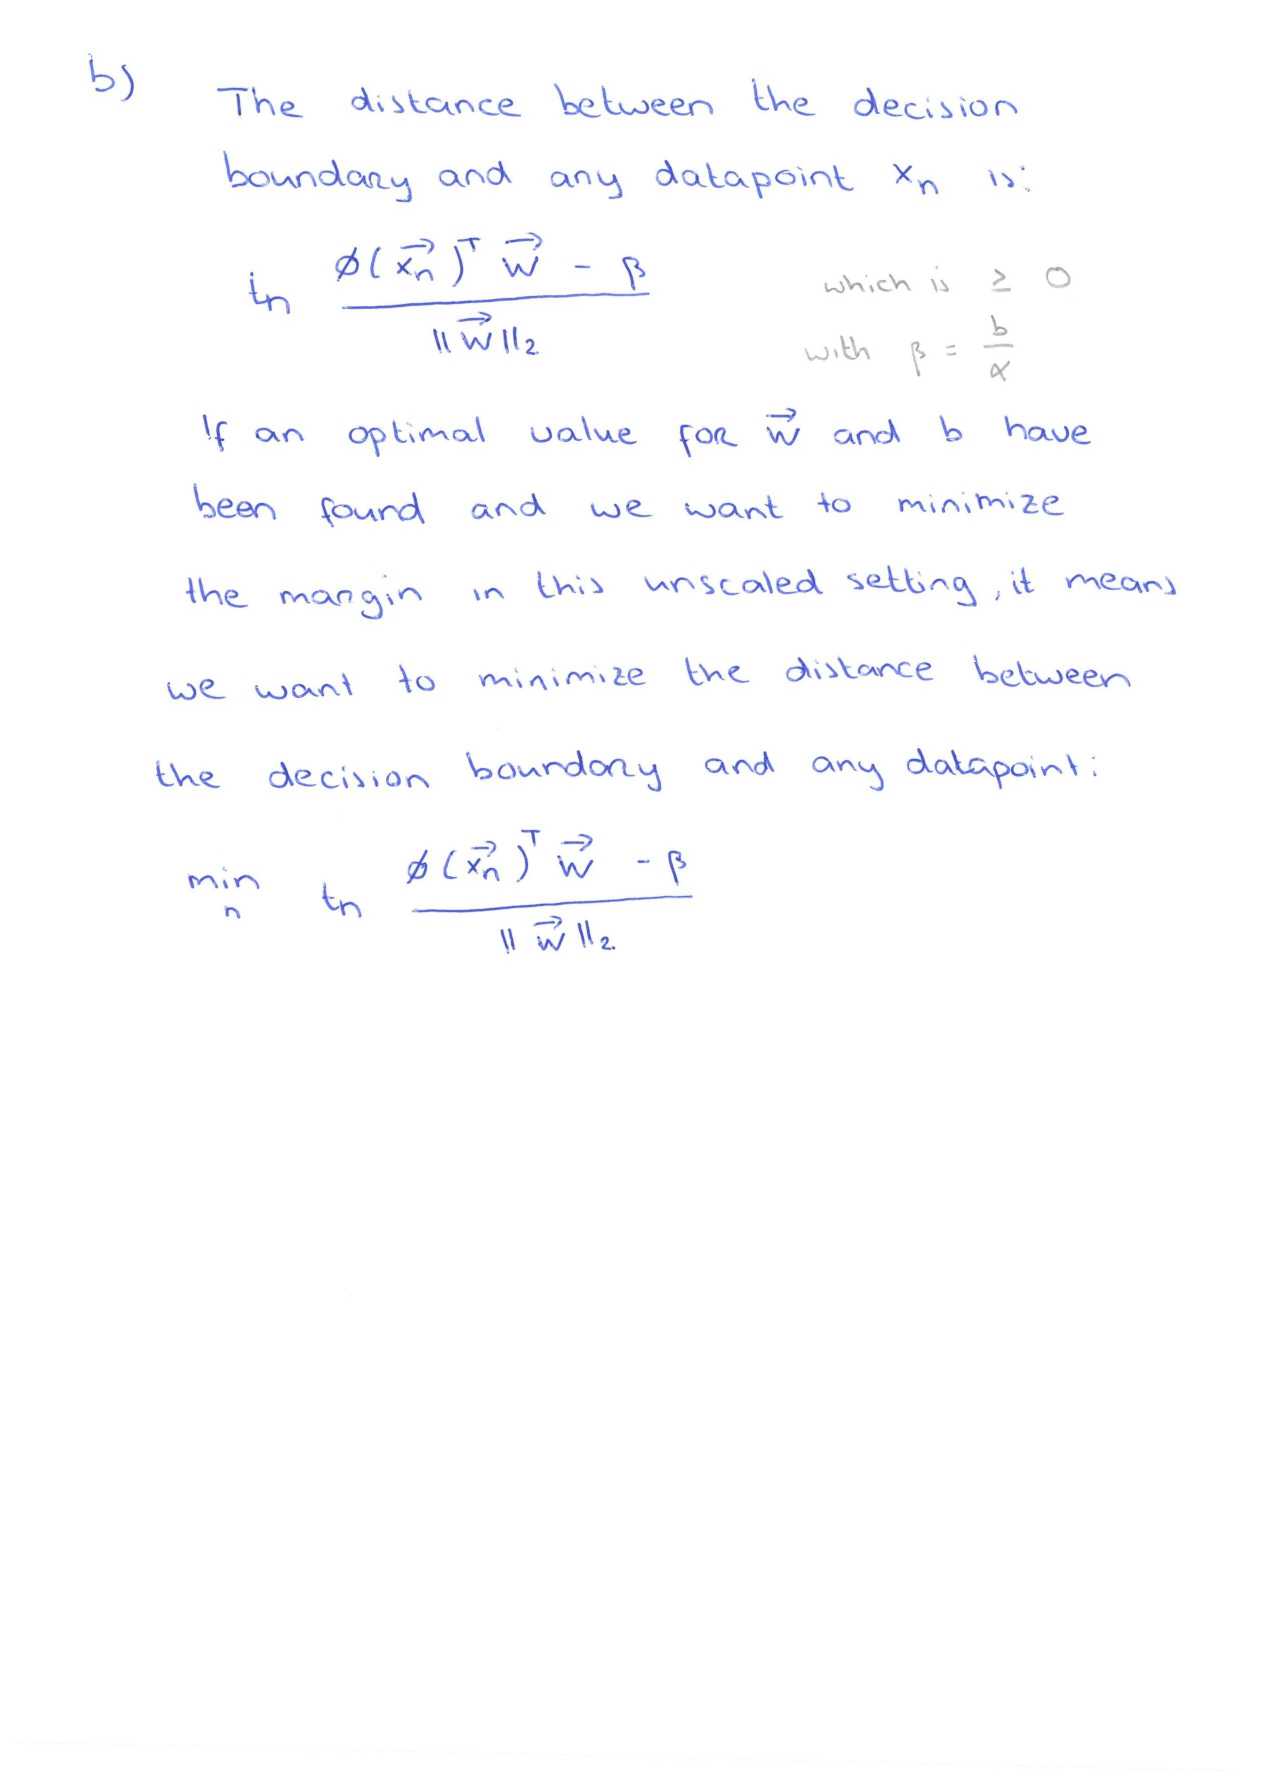 b)
The distance between the decision
boundary and any datapoint xₙ is:
tₙ (ϕ(x⃗ₙ)ᵀ w⃗ - β) / ||w⃗||₂ which is ≥ 0
with β = b/α
If an optimal value for w⃗ and b have
been found and we want to minimize
the margin in this unscaled setting, it means
we want to minimize the distance between
the decision boundary and any datapoint:
min n tₙ (ϕ(x⃗ₙ)ᵀ w⃗ - β) / ||w⃗||₂